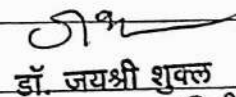 डॉ. जयश्री शुक्ल